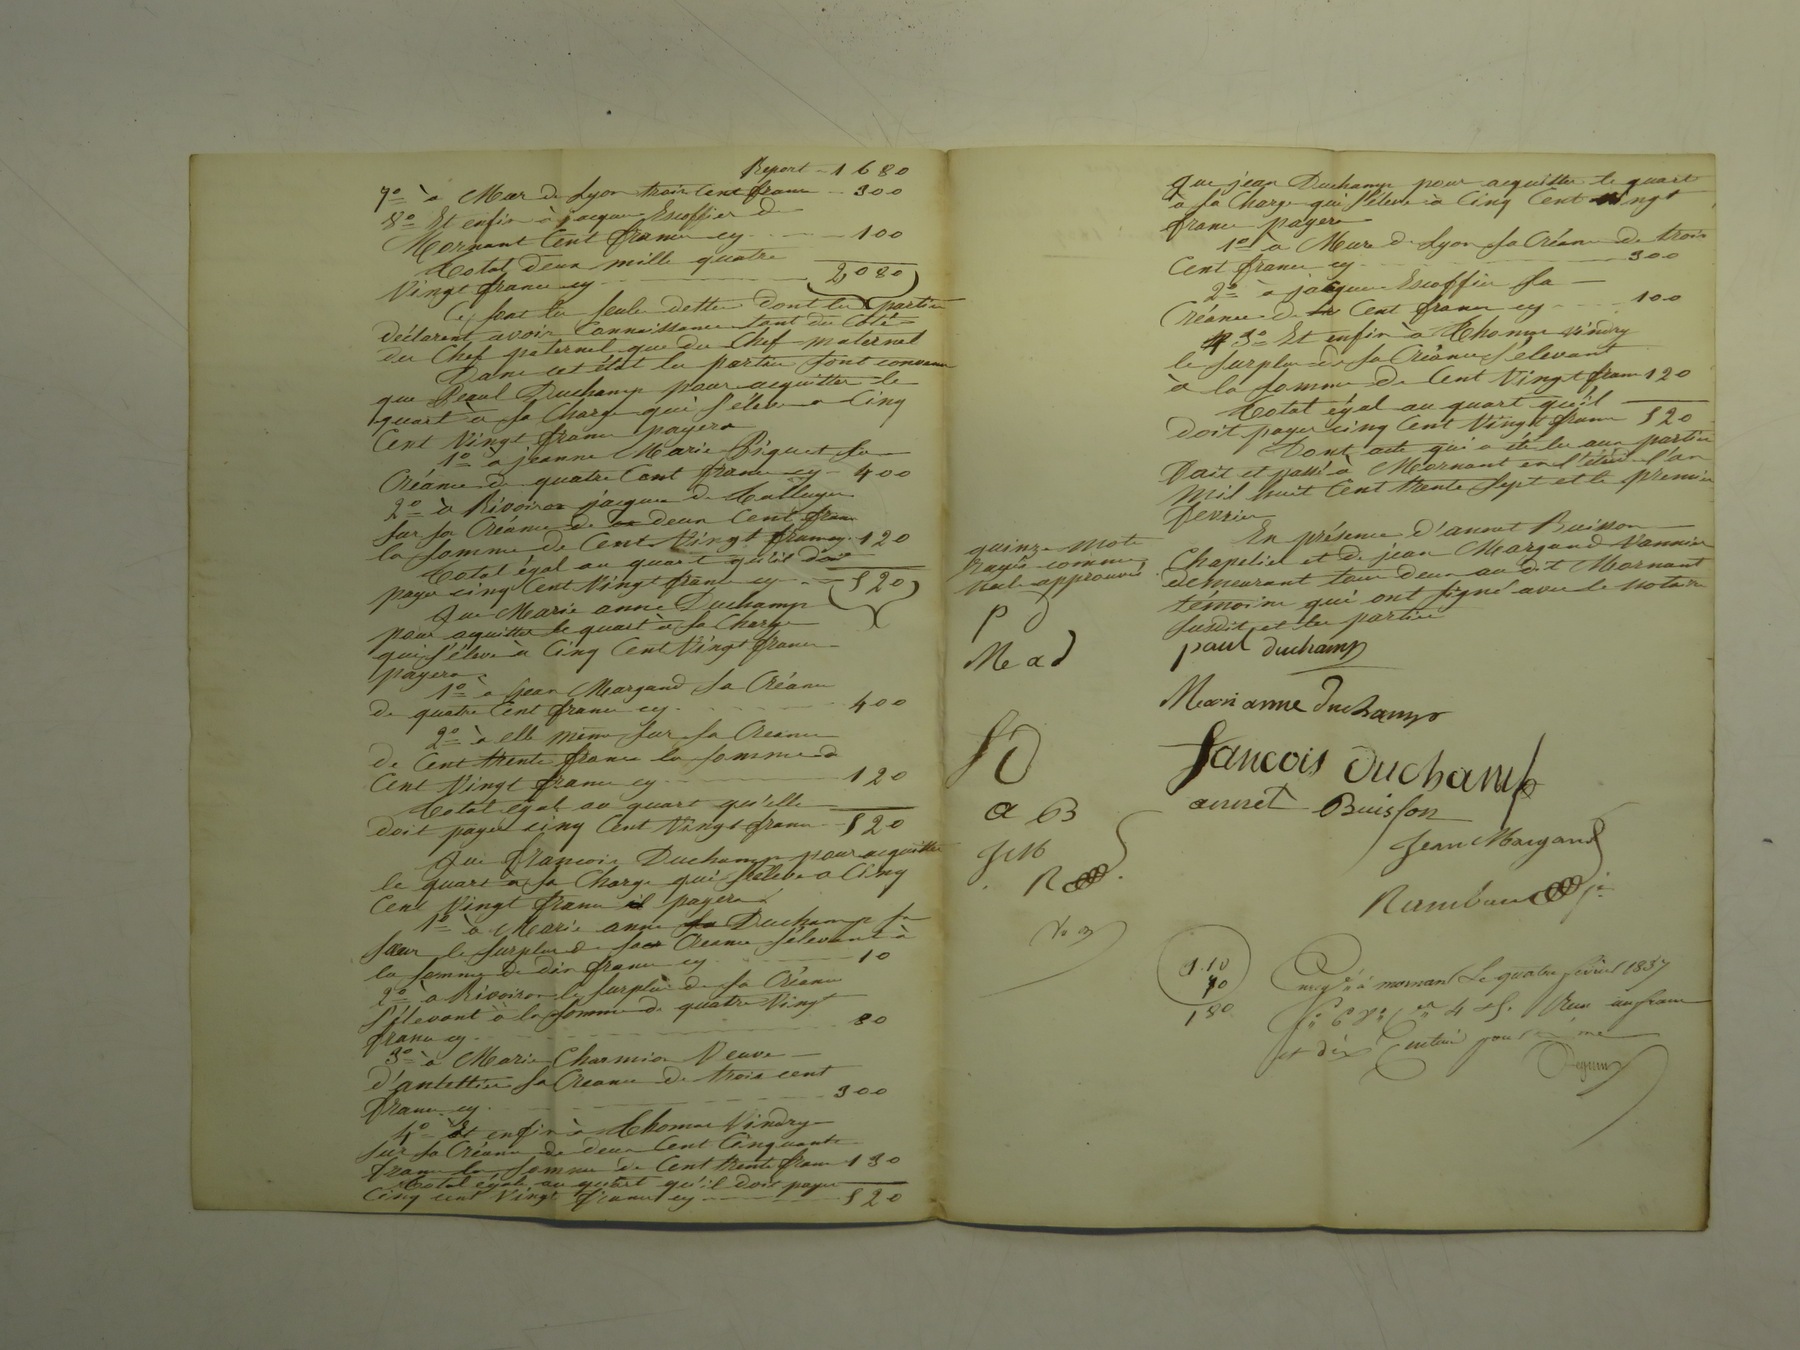 Report - 1680
7º à Mur de Lyon trois Cent franc - 300
8º Et enfin à jacque Escoffier de
Mornant Cent franc cy - 100
Total deux mille quatre
Vingt franc cy - 2,080
Ce sont les seule dette dont les partie
déclarent avoir Connaissance tant du Coté
du Chef paternel que du Chef maternel
Dans cet état les partie sont convenue
que Paul Duchamp pour acquitter le
quart à sa Charge qui s'élève a Cinq
Cent Vingt franc payera
1º a jeanne Marie Piguet sa
Créance de quatre Cent franc cy - 400
2º à Rivoire jacque de
sur sa Créance de deux Cent franc
la somme de Cent Vingt franc cy - 120
Total égal au quart qu'il doit
payer cinq Cent Vingt franc cy - 520
Que Marie anne Duchamp
pour aquitter le quart à sa Charge
qui s'élève à Cinq Cent Vingt franc
payera
1º à jean Margand sa Créance
de quatre Cent franc cy - 400
2º à elle même sur sa Creance
de Cent trente franc la somme de
Cent Vingt franc cy - 120
Total égal au quart qu'elle
doit payer cinq Cent Vingt franc - 520
Que françois Duchamp pour acquitter
le quart à sa Charge qui s'élève a Cinq
Cent Vingt franc il payera
1º à Marie anne Duchamp sa
Sœur le surplus de sa Creance s'élevant à
la somme de dix franc cy - 10
2º à Rivoire le surplus de sa Créance
s'élevant à la somme de quatre Vingt
franc cy - 80
3º à Marie Charmion Veuve
d'antettier sa Creance de trois cent
franc cy - 300
4º Et enfin à Thomas Vindry
sur sa Créance de deux Cent Cinquante
franc la somme de Cent trente franc - 130
Total égale au quart qu'il doit payer
Cinq cent Vingt franc cy - 520
que jean Duchamp pour acquitter le quart
à sa Charge qui s'élève à Cinq Cent vingt
franc payera
1º à Mure de Lyon sa Créance de trois
Cent franc cy - 300
2º à jacque Escoffier sa
Créance de Cent franc cy - 100
3º Et enfin à Thomas Vindry
le surplus de sa Créance s'élevant
à la somme de Cent Vingt franc 120
Total égal au quart qu'il
doit payer cinq Cent Vingt franc 520
Dont acte qui a été lu aux partie
Fait et passé à Mornant en l'étude l'an
Mil huit Cent trente sept et le premier
fevrier
En présence d'annet Buisson
Chapelier et de jean Margand Vannier
demeurant tous deux au dit Mornant
témoins qui ont signé avec le notaire
susdit et les partie
quinze mots
Rayés comme
nuls approuvés
P D
M a d
f D
a B
J M
R
paul duchamp
Marianne duchamp
fancois duchamp
annet Buisson
Jean Margand
1.10
70
1 80
Enregé à mornant Le quatre février 1837
Reçu un franc
et dix Centime pour